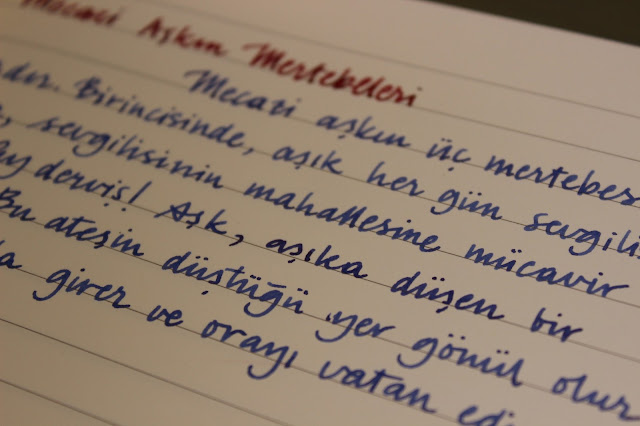 Mecazi Aşkın Mertebeleri
Mecazi aşkın üç mertebes
dır. Birincisinde, aşık her gün sevgilis
sevgilisinin mahallesine mücavir
ey derviş! Aşk, aşıka düşen bir
Bu ateşin düştüğü yer gönül olur
girer ve orayı vatan edi